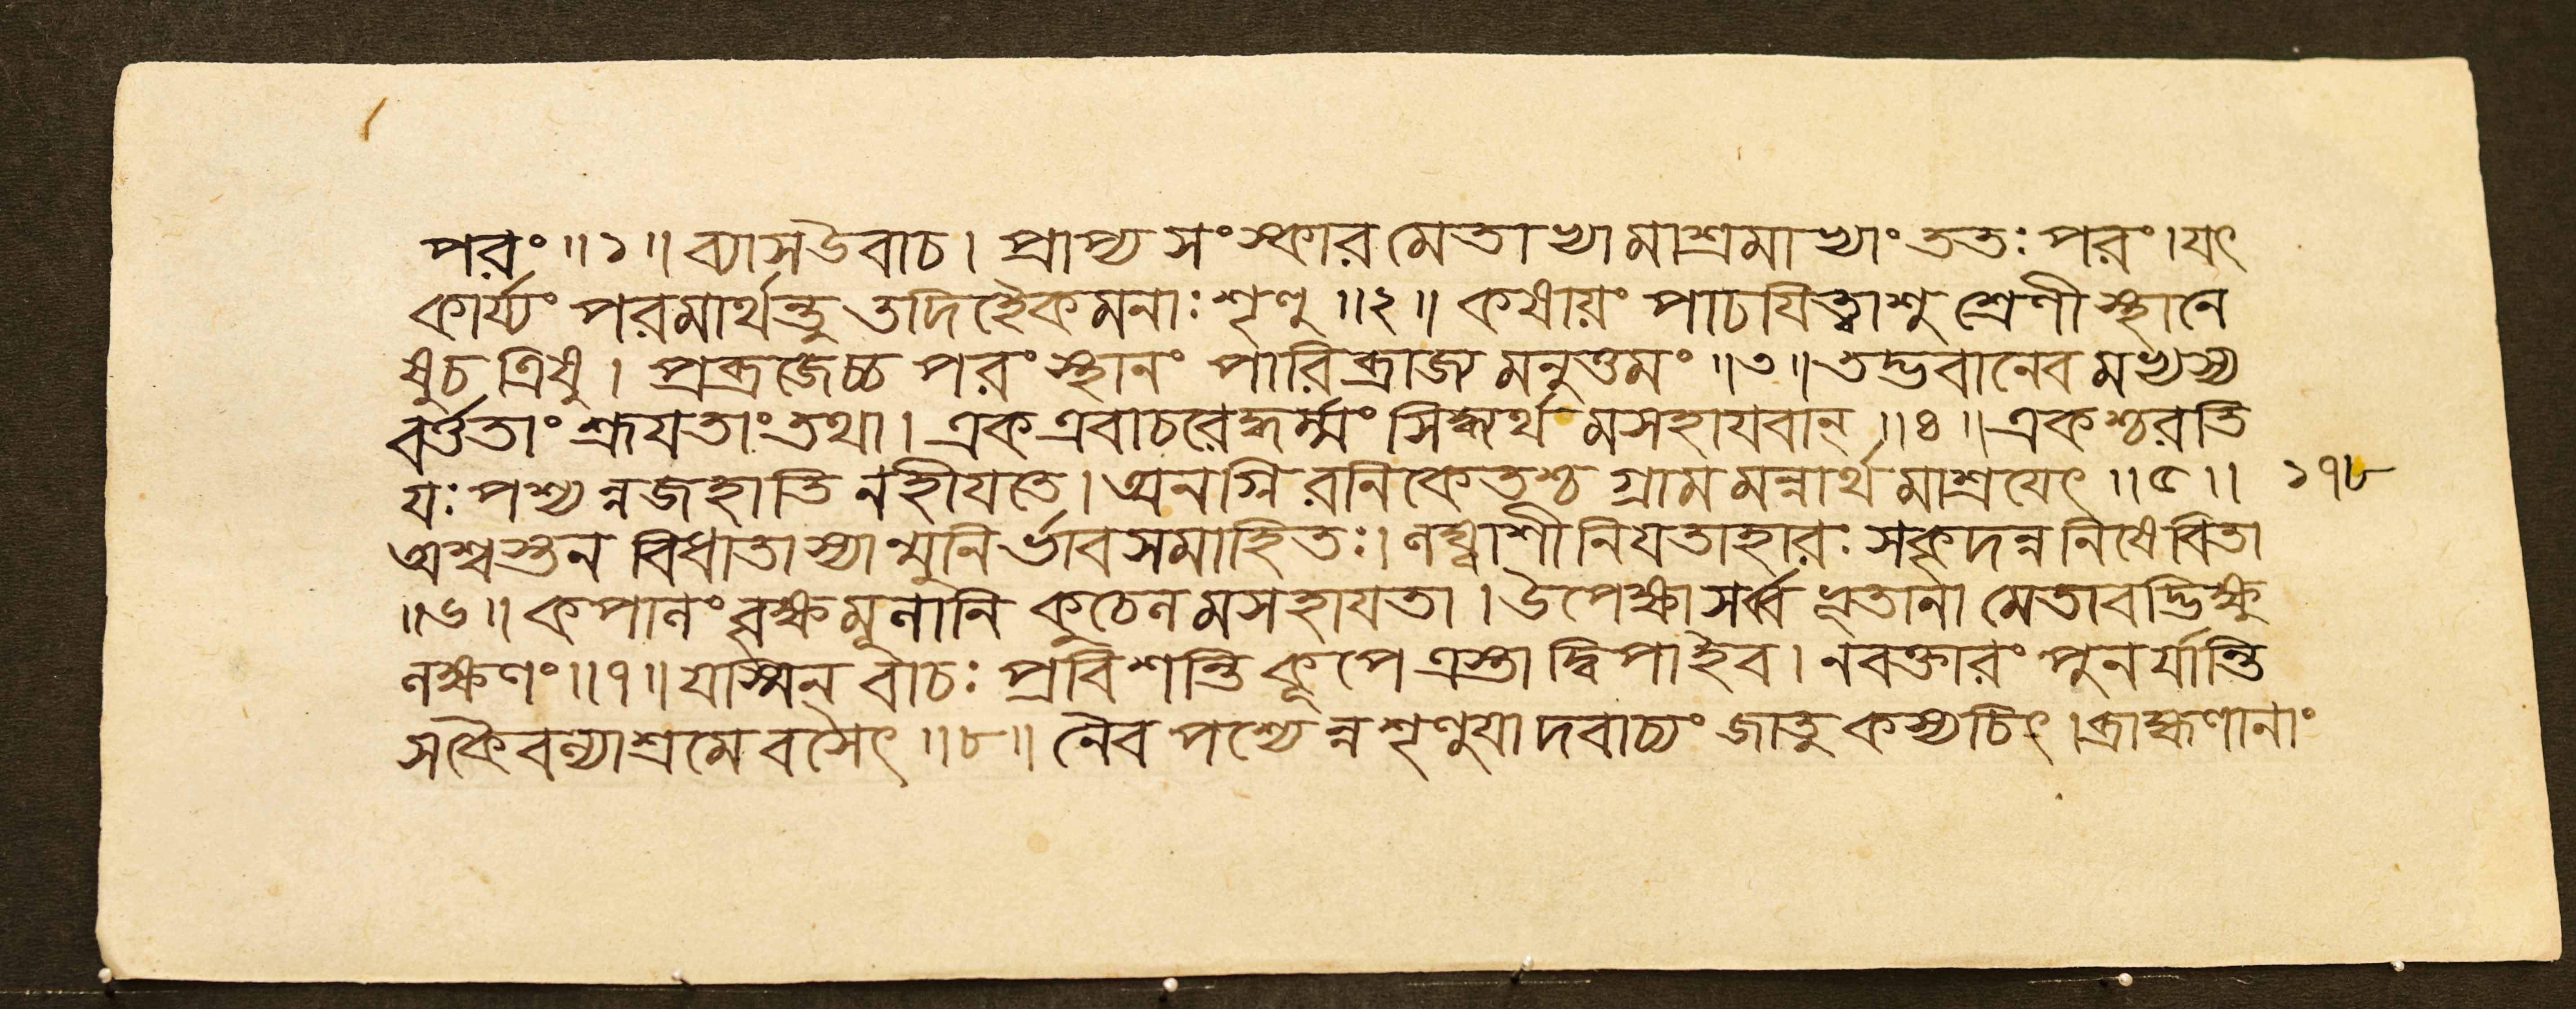 পরং ॥১॥ ব্যাসউবাচ। প্রাপ্য সংস্কারমেতাভ্যামাশ্রমাভ্যাং ততঃ পরং। যৎ
কার্য্যং পরমার্থন্তু তদিহৈকমনাঃ শৃণু ॥২॥ কষায়ং পাচযিত্বাশু শ্রেণীস্থানে
ষুচ ত্রিষু। প্রব্রজেচ্চ পরং স্থানং পারিব্রাজ্যমনুত্তমং ॥৩॥ তদ্ভবানেবমভ্যস্য
বর্ত্ততাং শ্রূযতাং তথা। এক এবাচরেদ্ধর্ম্মং সিদ্ধ্যর্থমসহাযবান্ ॥৪॥ একশ্চরতি
যঃ পশ্যন্নজহাতি নহীযতে। অনগ্নিরনিকেতশ্চ গ্রামমন্নার্থমাশ্রযেৎ ॥৫॥ ১৭৮
অশ্বস্তনবিধাতাস্যান্মুনির্ভাবসমাহিতঃ। লঘ্বাশীনিযতাহারঃ সকৃদন্ননিষেবিতা
॥৬॥ কপালং বৃক্ষমূলানি কুচেলমসহাযতা। উপেক্ষা সর্ব্বভূতানামেতাবদ্ভিক্ষু
লক্ষণং ॥৭॥ যস্মিন্ বাচঃ প্রবিশন্তি কূপে এস্তাদ্বিপাইব। নবক্তারং পুনর্যান্তি
সকৈবল্যাশ্রমে বসেৎ ॥৮॥ নৈব পশ্যেন্নশৃণুযাদবাচ্যং জাতু কস্যচিৎ। ব্রাহ্মণানাং